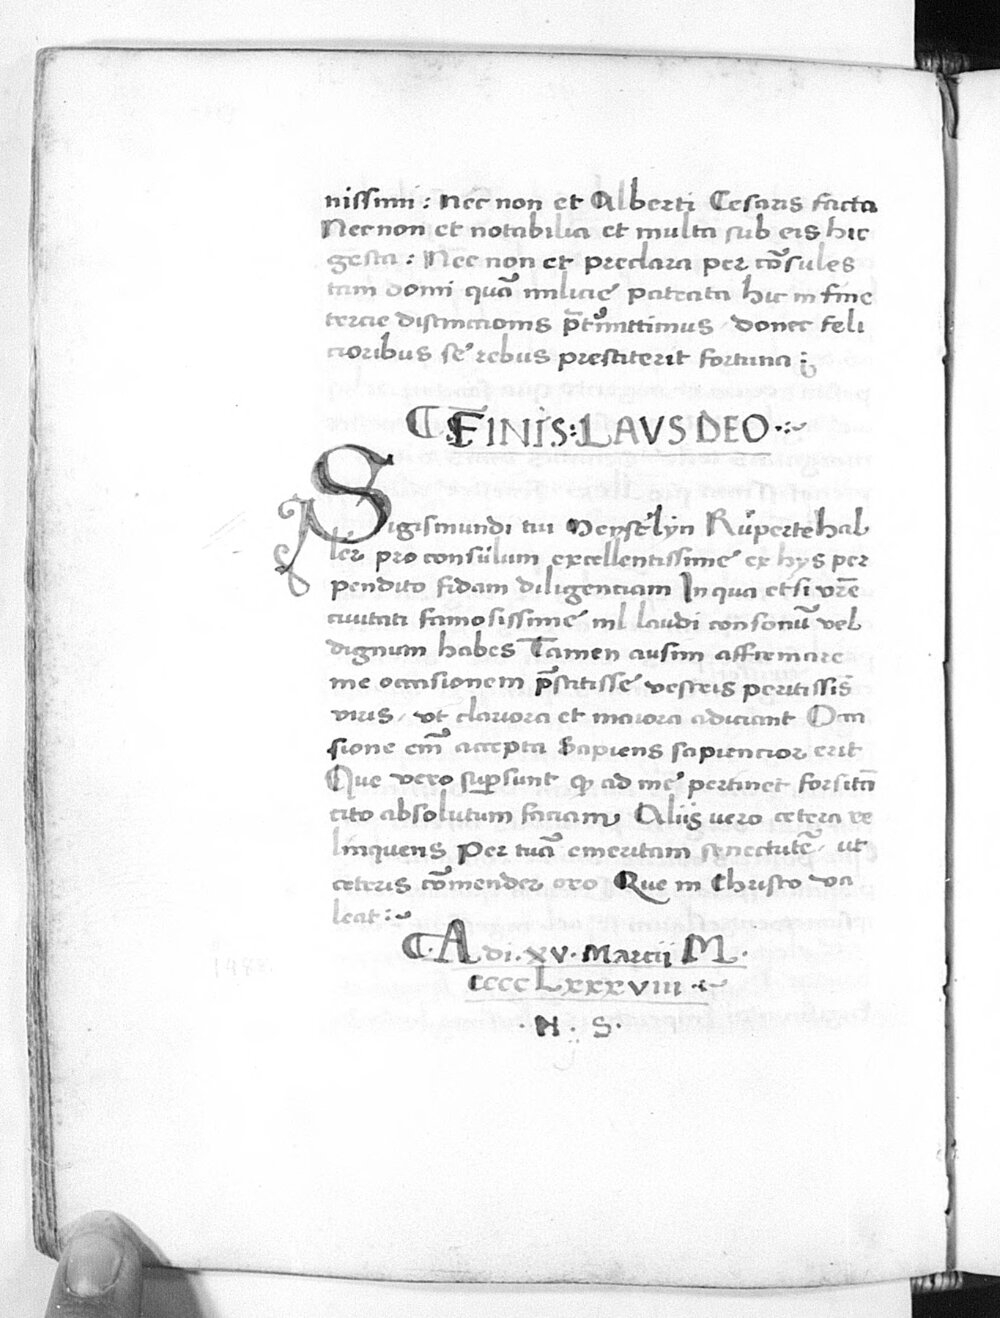 nissimi : Nec non et Alberti Cesaris facta
Nec non et notabilia et multa sub eis hic
gesta : Nec non et preclara per cōsules
tam domi quā milicie patrata hic in fine
tercie distinctionis donec feli
cioribus se rebus prestiterit fortuna ;
FINIS : LAVS DEO
Sigismundi tui Meystẽlyn Růpertehal
ler pro consulum excellentissime ex hys per
pendito fidam diligenciam In qua etsi vrẽ
ciuitati famosissime laudi consonū vel
dignum habes Tamen ausim affirmare
me occasionem p̄stitisse vestris peritissis̄
viris , vt clariora et maiora adiciant Occa
sione em̄ accepta Sapiens sapiencior erit
Que vero sup̱sunt ad me pertinet forsitā
cito absolutum faciam Aliis uero cetera re
linquens Per tuā emeritam senectutē , ut
ceteris cōmender oro Que in Christo va
leat :~
Adi . XV . Marcii M .
CCCC LXXXVIII
. H . S .
1488.